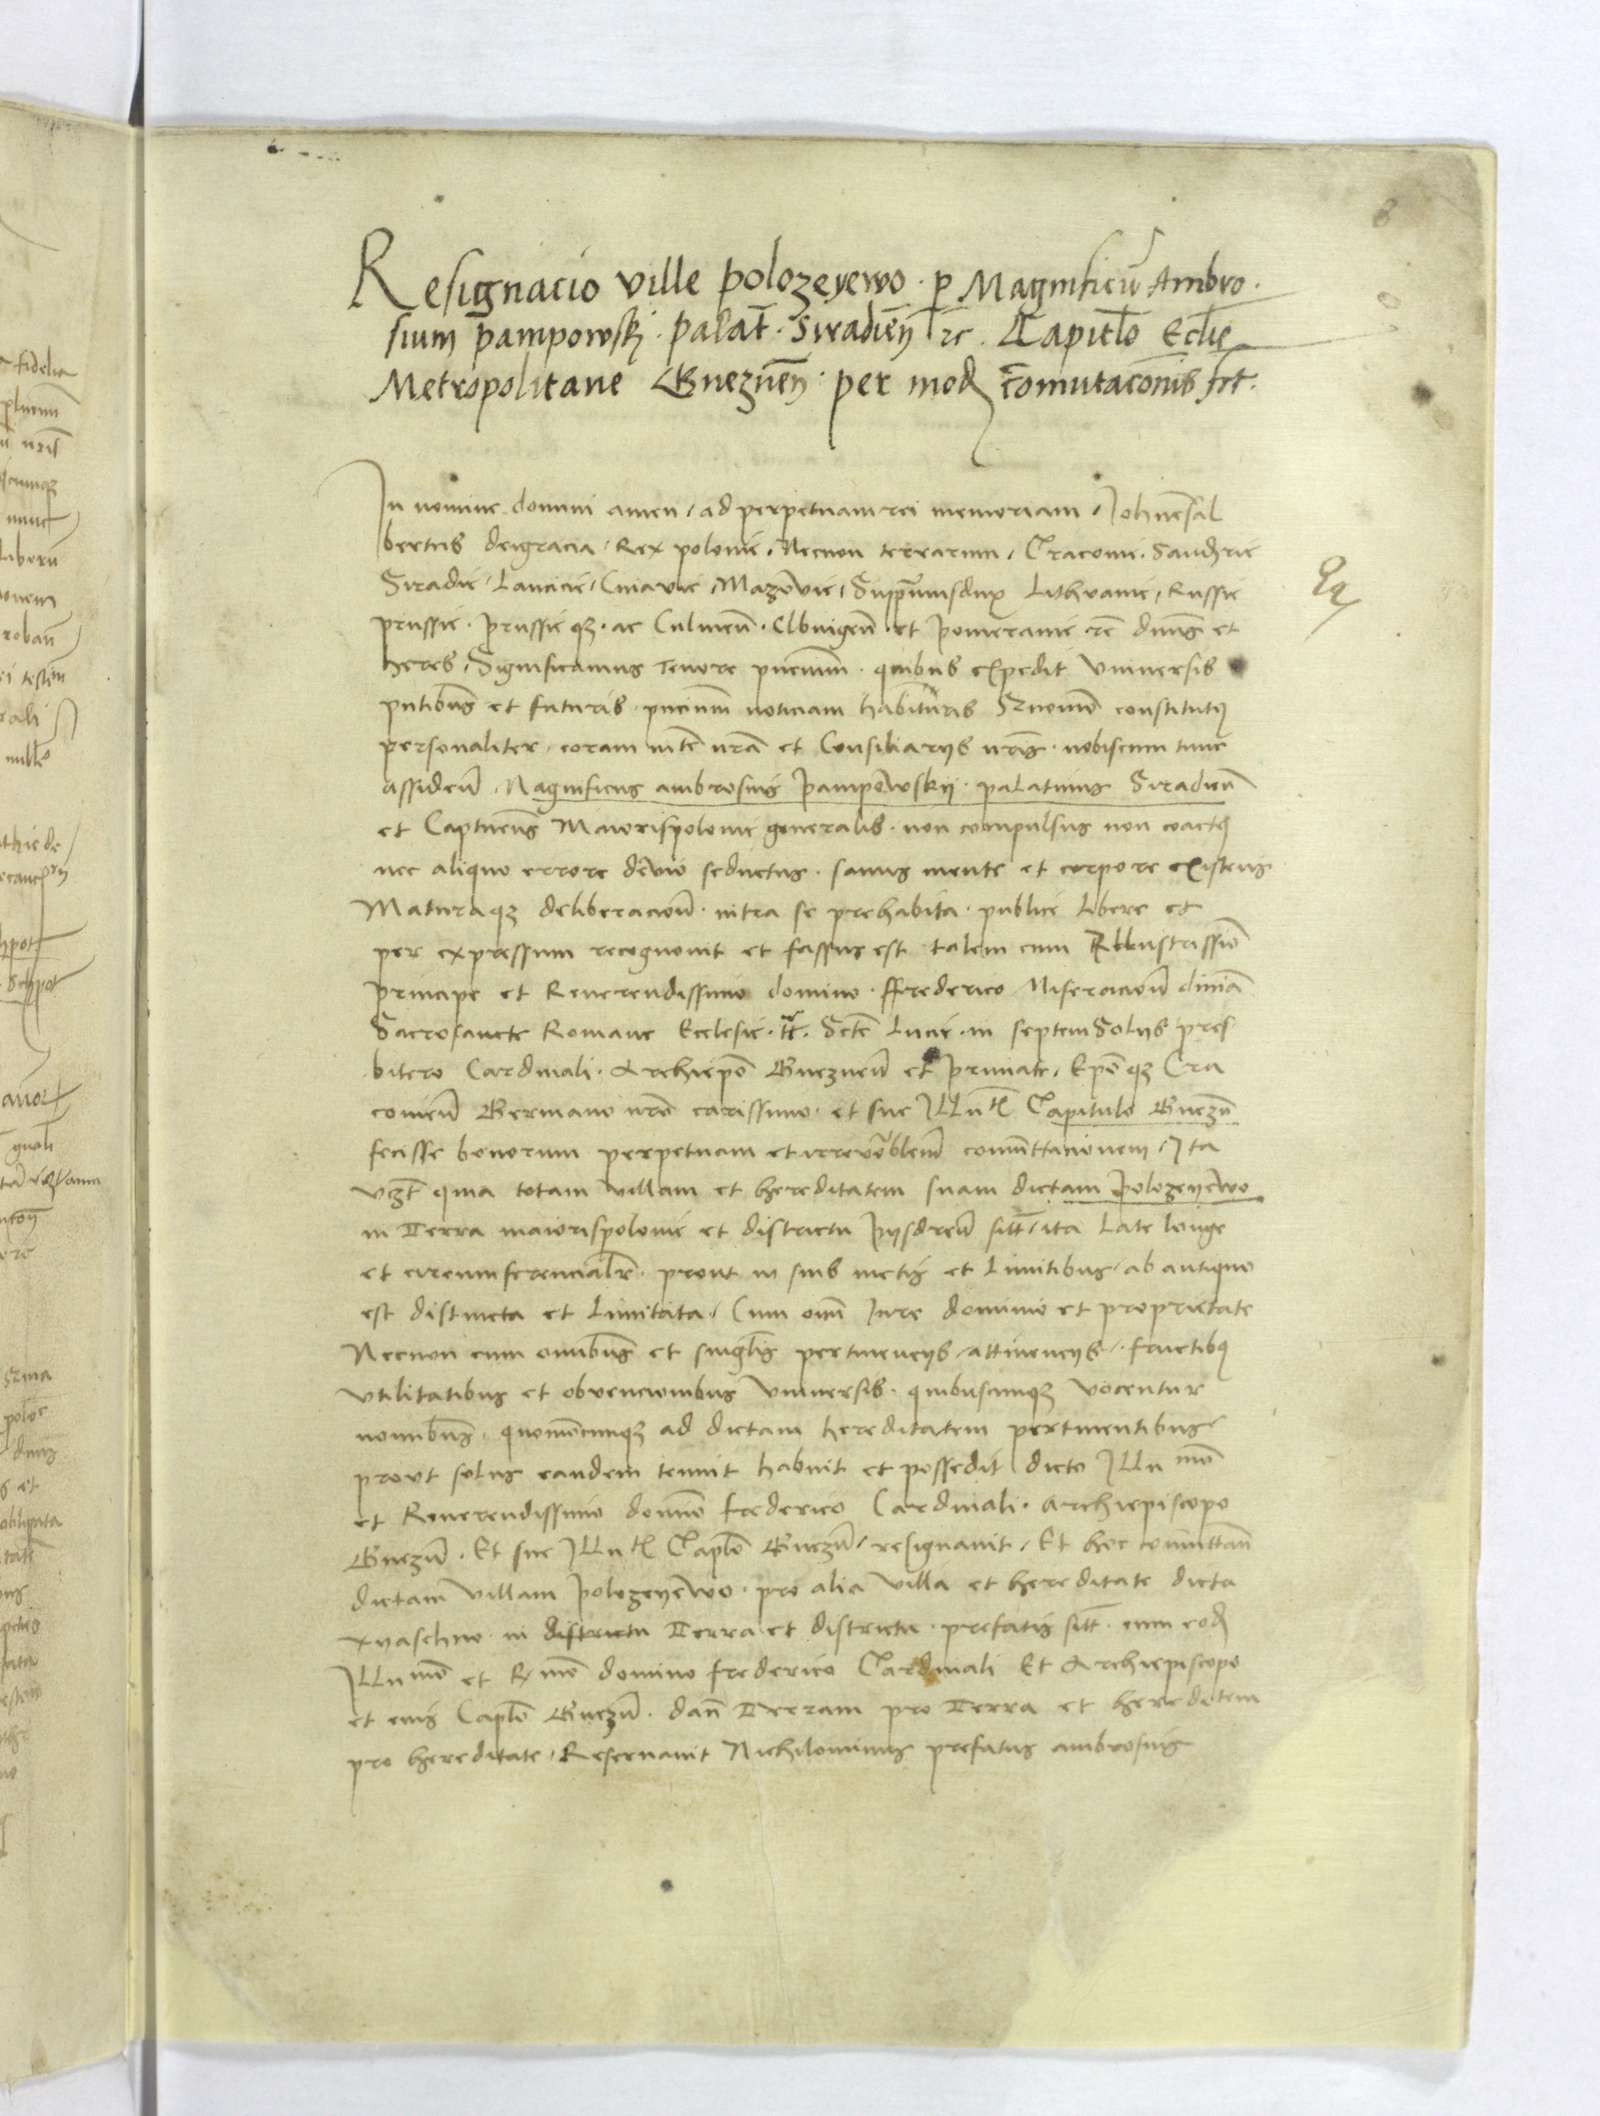 Resignacio ville polozeyewo · p Magnificũ Ambro·
sium pampowskj · palat̃ · Siradieñ ꝛc · Capitl̃o Ecl̃ie
Metropolitane Gnezneñ · per mod̃ comutacõnis fct̃·
In nomine domini amen / ad perpetuam rei memoriam / Joh̃nes al
bertus dei gracia / Rex polonie · Necnon terrarum / Cracouie · Sandr̃ie
Siradie / Lancicie / Cuiavie / Mazõvie / Supp̃mus dux Lithvanie / Russie
prussie · prussie qꝫ · ac Culmeñ · Elbuigeñ · et pomeranie ꝛc̃ dnũs et
heres / Significamus Tenore pñcium · quibus expedit vniversis
pñtibus et futuris · pñcium noticiam habituris Quom̃o constitutꝯ
personaliter · coram mt̃e nr̃a et Consiliarijs nr̃is · nobiscum tunc
assideñ · Magnificus ambrosius pampowskij · palatinus Siradieñ
et Capitneus Maiorispolonie generalis · non compulsus non coactꝯ
nec aliquo errore devio seductus · sanus mente et corpore existens
Maturaqꝫ deliberacioñ · intra se prehabita · publice libere et
per expressum recognouit et fassus est talem cum Illustrissiõ
principe et Reuerendissimo domino · ffrederico Miseracioñ diuiã
Sacrosancte Romane Ecclesie · tt̃ · Sct̃e Lucie · in septem Solijs pres
bitero Cardinali · Archiep̃o Gnezneñ et primate / Ep̃o qꝫ Cra
couieñ Germano nr̃o carissimo · et sue Illu tĩ Capitulo Gnezñ
fecisse bonorum perpetuam et irreuoblem̃ comũttacionem / Ita
vꝫt̃ quia totam villam et hereditatem suam dictam polozeyewo
in Terra maiorispolonie et districtu pijsdreñ sitt̃ / ita late longe
et circumferencialr̃ · prout in suis metis et limitibus / ab antiquo
est distincta et limitata / Cum om̃i Iure dominio et proprietate
Necnon cum omĩbus et singl̃is pertinencijs / attinencijs / fructibꝯ
vtilitatibus et obvencionibus vniversis · quibuscumqꝫ vocentur
nomĩbus · quomõcumqꝫ ad dictam hereditatem pertinentibus
provt solus eandem tenuit habuit et possedit dicto Illu mõ
et Reuerendissimo domĩo frederico Cardinali · Archiepiscopo
Gnezñ · Et sue Illu tĩ Capl̃o Gnezñ / resignauit / Et hoc comũttañ
dictam villam polozeyewo · pro alia villa et hereditate dicta
xvaschno · in districtu Terra et districtu · prefatis sitt̃ · cum eod̃
Illu mõ et R mõ domino frederico Cardinali Et Archiepiscopo
et eius Capl̃o Gnezñ · dañ Terram pro Terra et hereditem
pro hereditate / Reseruauit Nichilominus prefatus ambrosius